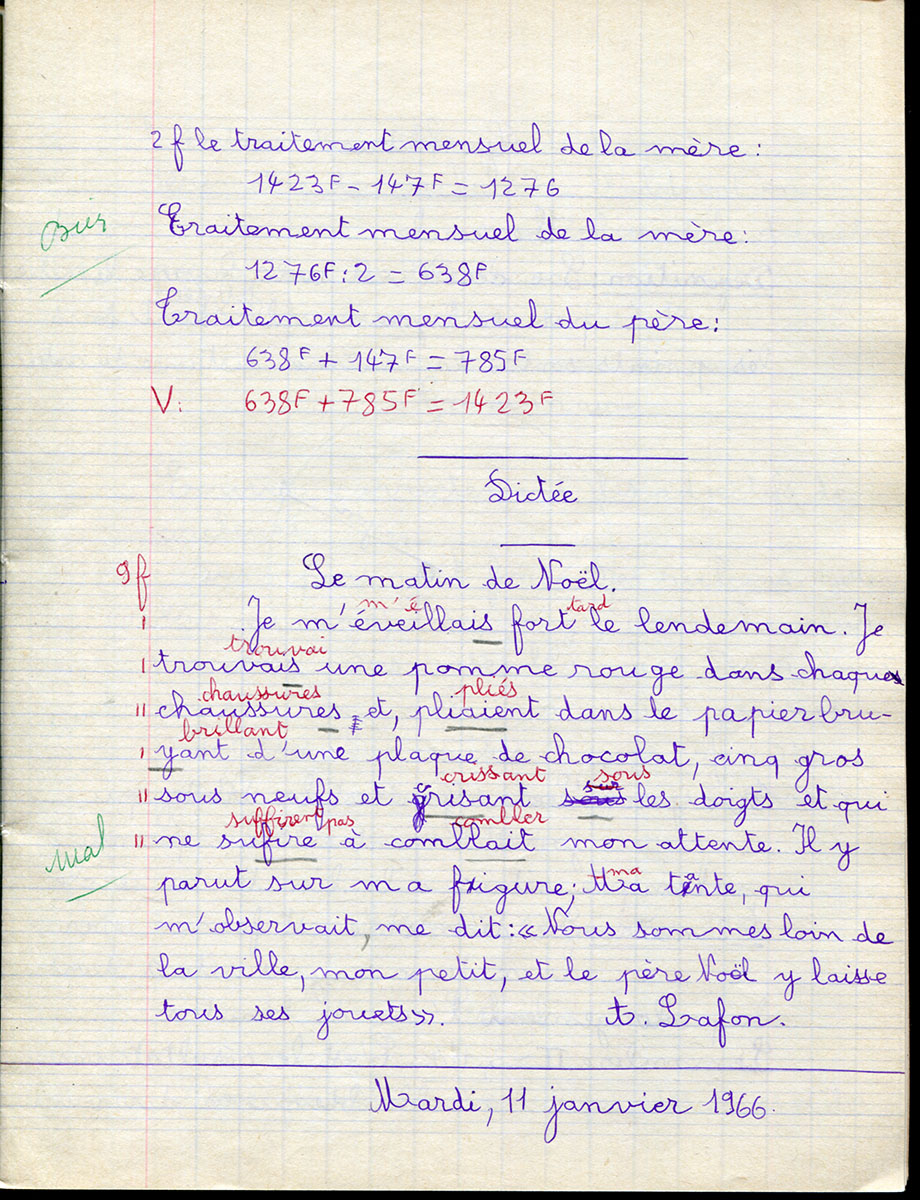 2 f le traitement mensuel de la mère :
1423F - 147F = 1276
Bien
Traitement mensuel de la mère :
1276F : 2 = 638F
Traitement mensuel du père :
638F + 147F = 785F
V. 638F + 785F = 1423F
Dictée
9f
Le matin de Noël.
m'é tard
Je m'éveillais fort le lendemain. Je
trouvai
trouvais une pomme rouge dans chaques
chaussures pliés
chaussures, et, pliaient dans le papier bru-
brillant
yant d'une plaque de chocolat, cinq gros
crissant sous
sous neufs et grisant les doigts et qui
suffirent pas combler
ne sufire à comblait mon attente. Il y
mal
ma
parut sur ma figure; Ma tante, qui
m'observait, me dit : « Nous sommes loin de
la ville, mon petit, et le père Noël y laisse
tous ses jouets ».
t. Lafon.
Mardi, 11 janvier 1966.